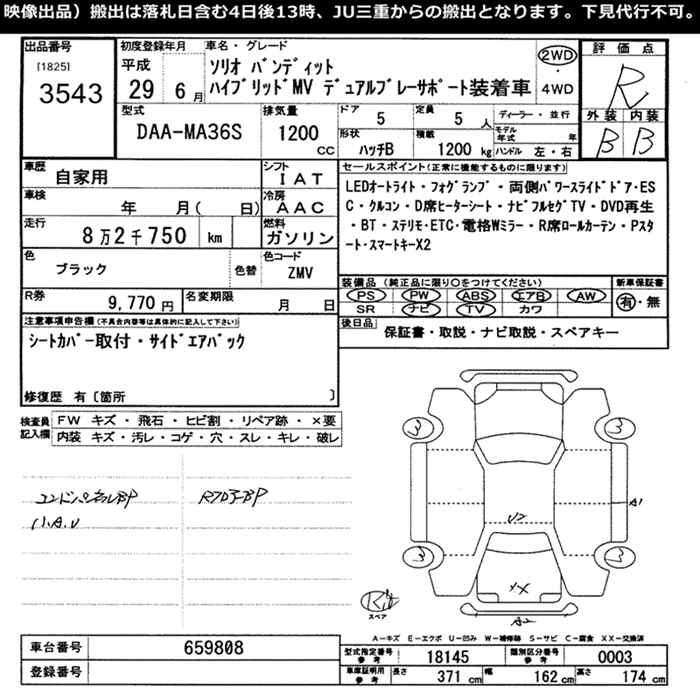 映像出品）搬出は落札日含む4日後13時、JU三重からの搬出となります。下見代行不可。
出品番号 初度登録年月 車名・グレード 評価点
[1825] 平成 ソリオ バンディット 2WD R
3543 29 6月 ハイブリッドMV デュアルブレーサポート装着車 4WD
外装 内装
B B
型式 排気量 ドア 定員 ディーラー・並行
DAA-MA36S 1200 cc 5 5人 モデル年式 年
形状 積載 ハンドル 左・右
ハッチB 1200 kg
車歴 シフト セールスポイント(正常に機能するものに限ります)
自家用 IAT LEDオートライト・フォグランプ・両側パワースライドドア・ES
車検 冷房 C・クルコン・D席ヒーターシート・ナビフルセグTV・DVD再生
年 月( 日) AAC ・BT・ステリモ・ETC・電格Wミラー・R席ロールカーテン・Pスタ
走行 燃料 ート・スマートキーX2
8万2千750 km ガソリン
色 色替 色コード 装備品(純正品に限り○をつけてください) 新車保証書
ブラック ZMV PS PW ABS エアB AW 有・無
SR ナビ TV カワ
R券 9,770円 名変期限 月 日
後日品 保証書・取説・ナビ取説・スペアキー
注意事項申告欄(不具合内容等は具体的に記入して下さい)
シートカバー取付・サイドエアバック
修復歴 有〔箇所 〕
検査員記入欄 FW キズ・飛石・ヒビ割・リペア跡・×要
内装 キズ・汚レ・コゲ・穴・スレ・キレ・破レ
3 3
A1
U2
3 3
XX
スペア
A2
A―キズ E―エクボ U―凹み W―補修跡 S―サビ C―腐食 XX―交換済
車台番号 659808
登録番号
型式指定番号 参考 18145 類別区分番号 参考 0003
車庫証明用 参考 長さ 371 cm 幅 162 cm 高さ 174 cm